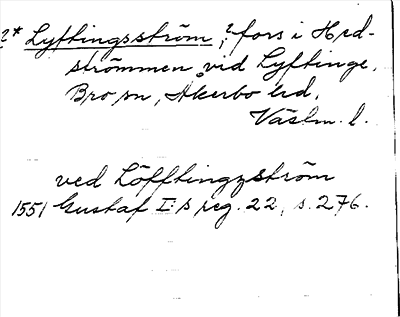 ?* Lyftingsström, ? fors i Hed-
strömmen vid Lyftinge,
Bro sn, Åkerbo hd,
Västm. l.
ved Löfftingzström
1551 Gustaf I:s reg. 22, s. 276.